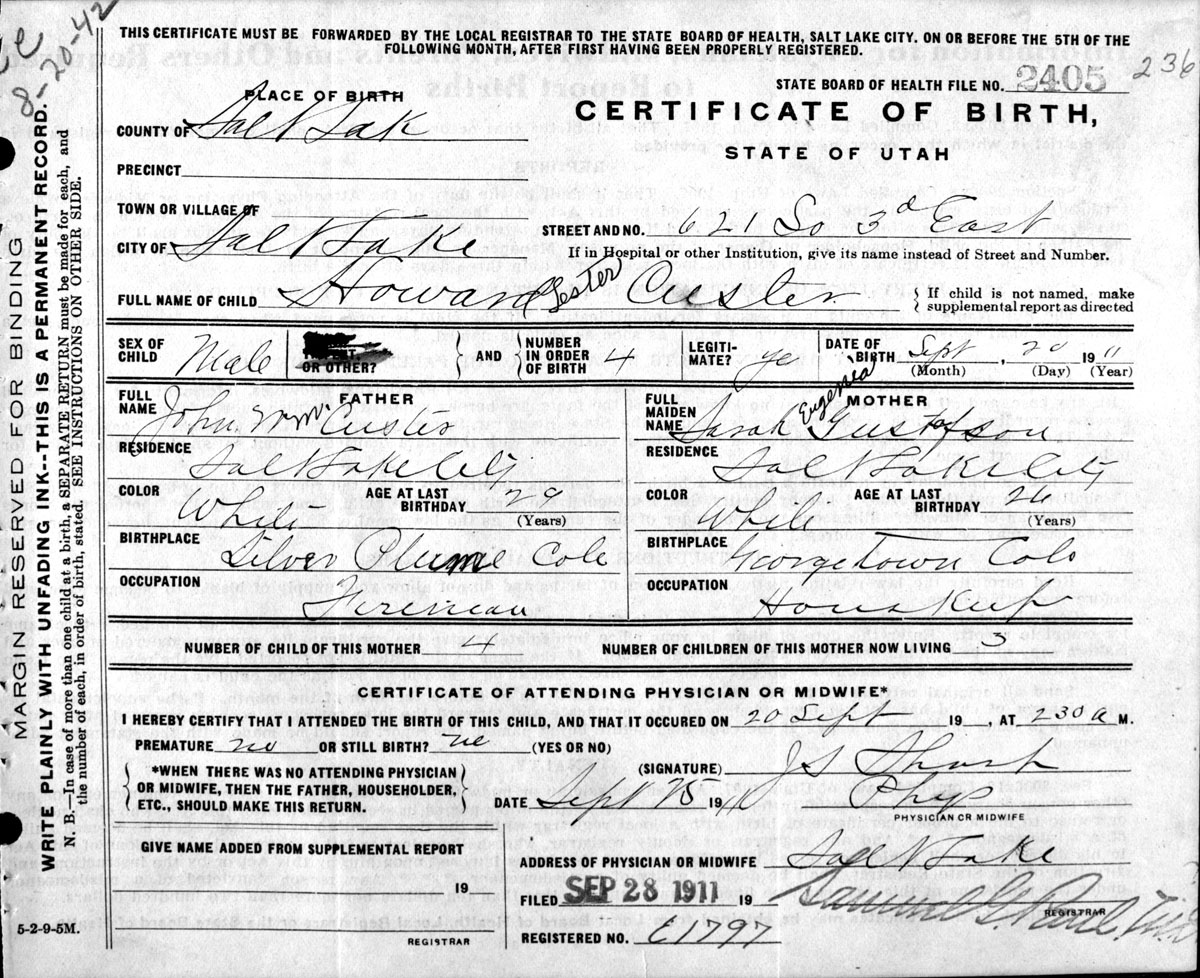 THIS CERTIFICATE MUST BE FORWARDED BY THE LOCAL REGISTRAR TO THE STATE BOARD OF HEALTH, SALT LAKE CITY, ON OR BEFORE THE 5TH OF THE
FOLLOWING MONTH, AFTER FIRST HAVING BEEN PROPERLY REGISTERED.
8-20-42
236
STATE BOARD OF HEALTH FILE NO. 2405
PLACE OF BIRTH
CERTIFICATE OF BIRTH,
STATE OF UTAH
COUNTY OF Salt Lake
PRECINCT
TOWN OR VILLAGE OF
CITY OF Salt Lake
STREET AND NO. 621 So 3d East
If in Hospital or other Institution, give its name instead of Street and Number.
FULL NAME OF CHILD Howard Lester Custer
If child is not named, make
supplemental report as directed
SEX OF CHILD Male
OR OTHER?
AND
NUMBER IN ORDER OF BIRTH 4
LEGITIMATE? ye
DATE OF BIRTH Sept, 20 1911
(Month) (Day) (Year)
FATHER
FULL NAME John Wm Custer
RESIDENCE Salt Lake City
COLOR White
AGE AT LAST BIRTHDAY 29
(Years)
BIRTHPLACE Silver Plume Colo
OCCUPATION Fireman
MOTHER
FULL MAIDEN NAME Sarah Eugenia Gustafson
RESIDENCE Salt Lake City
COLOR White
AGE AT LAST BIRTHDAY 26
(Years)
BIRTHPLACE Georgetown Colo
OCCUPATION Housekeep
NUMBER OF CHILD OF THIS MOTHER 4
NUMBER OF CHILDREN OF THIS MOTHER NOW LIVING 3
CERTIFICATE OF ATTENDING PHYSICIAN OR MIDWIFE*
I HEREBY CERTIFY THAT I ATTENDED THE BIRTH OF THIS CHILD, AND THAT IT OCCURED ON 20 Sept 19 , AT 230 a M.
PREMATURE no OR STILL BIRTH? no (YES OR NO)
*WHEN THERE WAS NO ATTENDING PHYSICIAN
OR MIDWIFE, THEN THE FATHER, HOUSEHOLDER,
ETC., SHOULD MAKE THIS RETURN.
(SIGNATURE) JS
DATE Sept 25 1911
Phys
PHYSICIAN OR MIDWIFE
GIVE NAME ADDED FROM SUPPLEMENTAL REPORT
19
REGISTRAR
ADDRESS OF PHYSICIAN OR MIDWIFE Salt Lake
FILED SEP 28 1911 19
Samuel G. Paul M.D.
REGISTRAR
REGISTERED NO. E1797
5-2-9-5M.
MARGIN RESERVED FOR BINDING
WRITE PLAINLY WITH UNFADING INK--THIS IS A PERMANENT RECORD.
N. B.—In case of more than one child at a birth, a SEPARATE RETURN must be made for each, and
the number of each, in order of birth, stated. SEE INSTRUCTIONS ON OTHER SIDE.